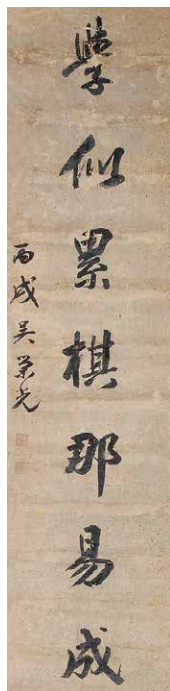 學似累棋那易成
丙戌吳榮光